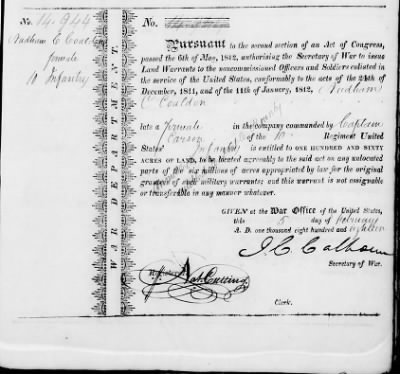 No. 14.944
Nudham E Coulden
private
10 Infantry
WAR DEPARTMENT.
No.
Pursuant to the second section of an Act of Congress,
passed the 6th of May, 1812, authorising the Secretary of War to issue
Land Warrants to the noncommissioned Officers and Soldiers enlisted in
the service of the United States, conformably to the acts of the 24th of
December, 1811, and of the 11th of January, 1812, Nudham
C Couldon
late a Private in the company commanded by Captain
Carson of the 10 Regiment United
States' Infantry is entitled to ONE HUNDRED AND SIXTY
ACRES OF LAND, to be located agreeably to the said act on any unlocated
part of the six millions of acres appropriated by law for the original
grantees of such military warrants; and this warrant is not assignable
or transferable in any manner whatever.
GIVEN at the War Office of the United States,
this 5 day of february
A. D. one thousand eight hundred and eighteen
J. C. Calhoun
Secretary of War.
Nath Cutting
Clerk.